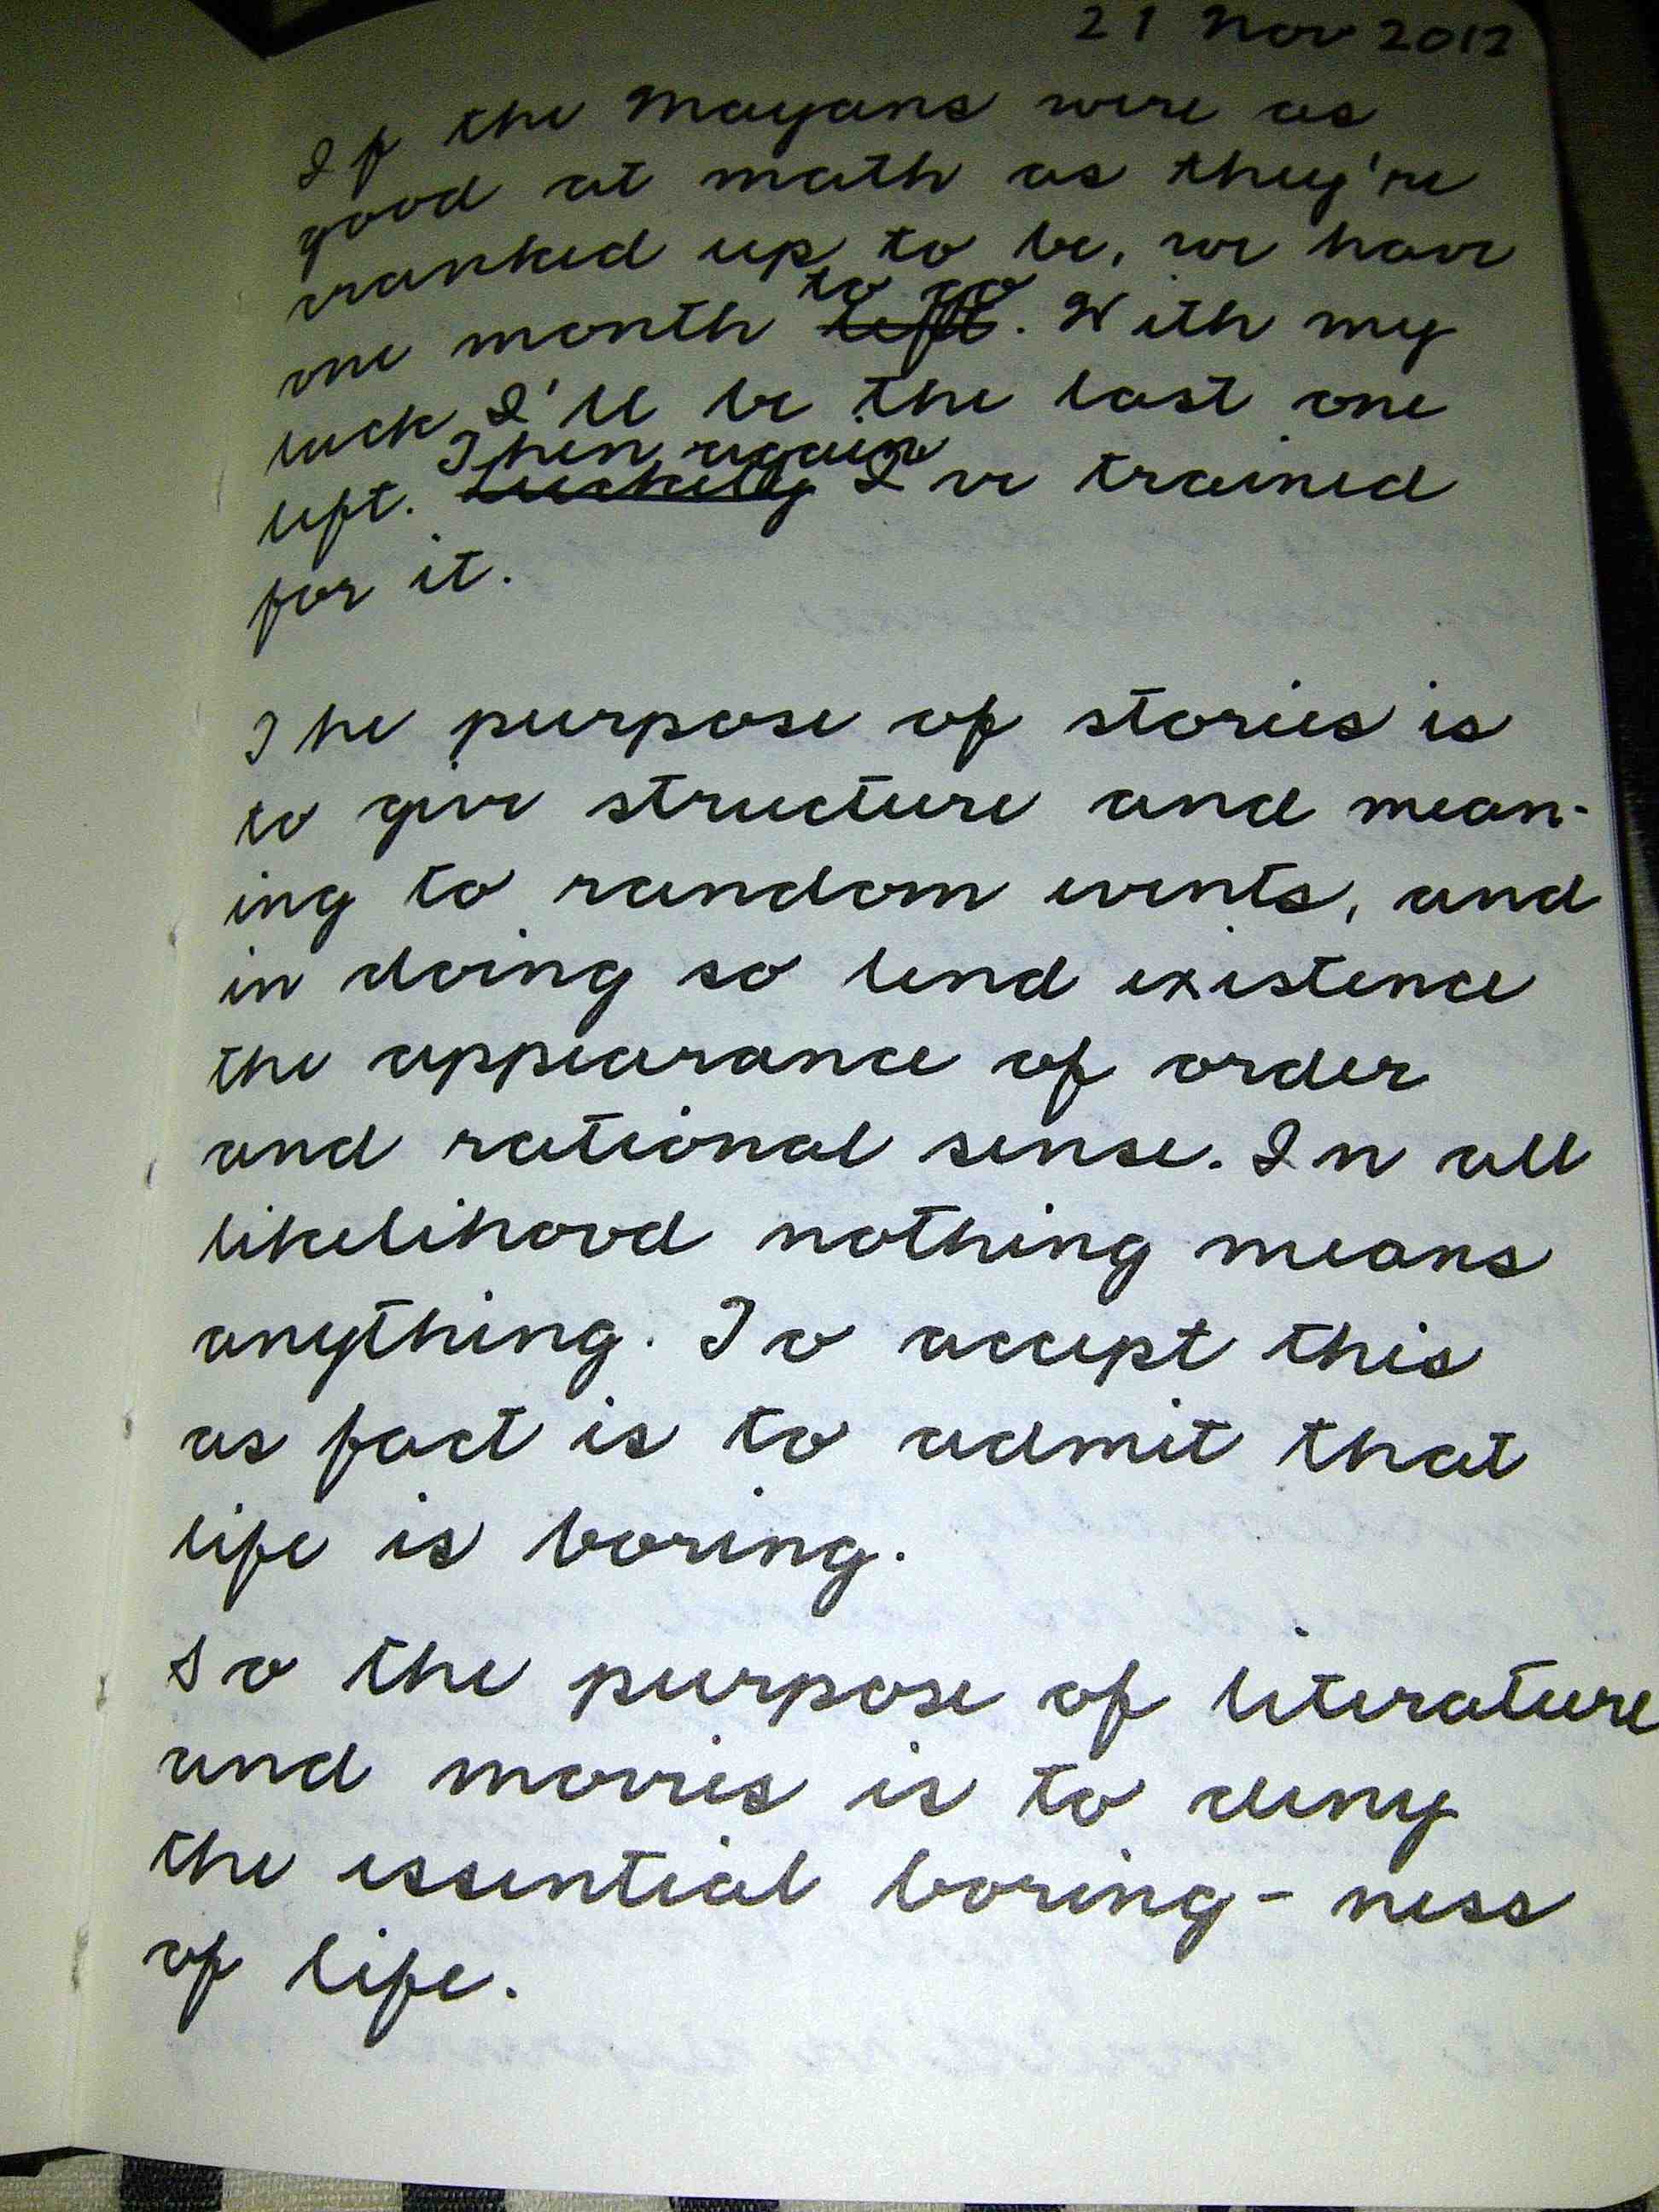 21 Nov 2012
If the Mayans were as
good at math as they're
cranked up to be, we have
to go
one month left. With my
luck I'll be the last one
Then again
left. Luckily I've trained
for it.
The purpose of stories is
to give structure and mean-
ing to random events, and
in doing so lend existence
the appearance of order
and rational sense. In all
likelihood nothing means
anything. To accept this
as fact is to admit that
life is boring.
So the purpose of literature
and movies is to deny
the essential boring-ness
of life.